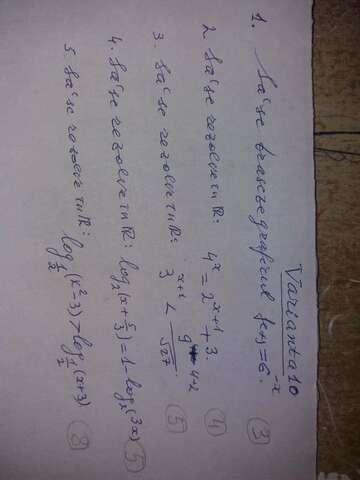 Varianta 10
1. Să se traseze graficul f(x)=6^-x. (3)
2. Să se rezolve în R: 4^x = 2^(x+1) + 3. (4)
3. Să se rezolve în R: 3^(x+1) < / √27 (5)
4. Să se rezolve în R: log₂(x + 5/3) = 1 - log₂(3x) (5)
5. Să se rezolve în R: log_(1/2)(x²-3) > log_(1/2)(x+3) (8)